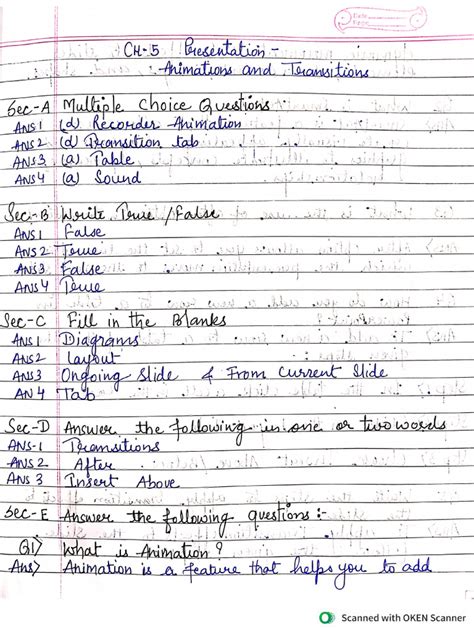 Date
Page
CH-5 Presentation -
Animations and Transitions
Sec-A Multiple Choice Questions
Ans 1 (d) Recorder Animation
Ans 2 (d) Transition tab
Ans 3 (a) Table
Ans 4 (a) Sound
Sec-B Write True/False
Ans 1 False
Ans 2 True
Ans 3 False
Ans 4 True
Sec-C Fill in the Blanks
Ans 1 Diagrams
Ans 2 Layout
Ans 3 Ongoing Slide & From Current Slide
An 4 Tab
Sec-D Answer the following in one or two words
Ans-1 Transitions
Ans 2 After
Ans 3 Insert Above
Sec-E Answer the following questions :-
Q1) What is Animation ?
Ans) Animation is a feature that helps you to add
Scanned with OKEN Scanner